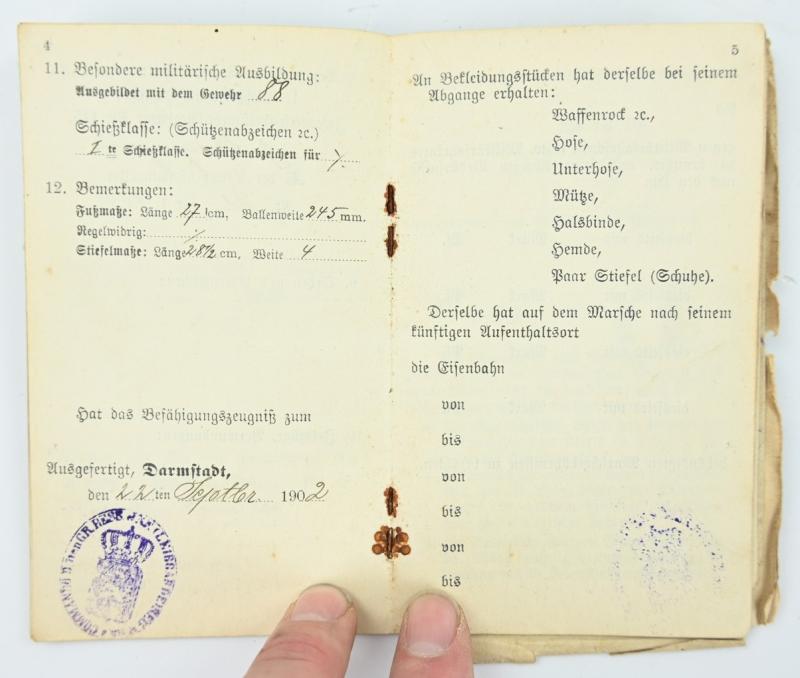 4
11. Besondere militärische Ausbildung:
Ausgebildet mit dem Gewehr 88
Schießklasse: (Schützenabzeichen ꝛc.)
I te Schießklasse. Schützenabzeichen für
12. Bemerkungen:
Fußmaße: Länge 27 cm, Ballenweite 245 mm.
Regelwidrig:
Stiefelmaße: Länge 28½ cm, Weite 4
Hat das Befähigungszeugniß zum
Ausgefertigt, Darmstadt,
den 22 ten Septbr. 1902
5
An Bekleidungsstücken hat derselbe bei seinem
Abgange erhalten:
Waffenrock ꝛc.,
Hose,
Unterhose,
Mütze,
Halsbinde,
Hemde,
Paar Stiefel (Schuhe).
Derselbe hat auf dem Marsche nach seinem
künftigen Aufenthaltsort
die Eisenbahn
von
bis
von
bis
von
bis